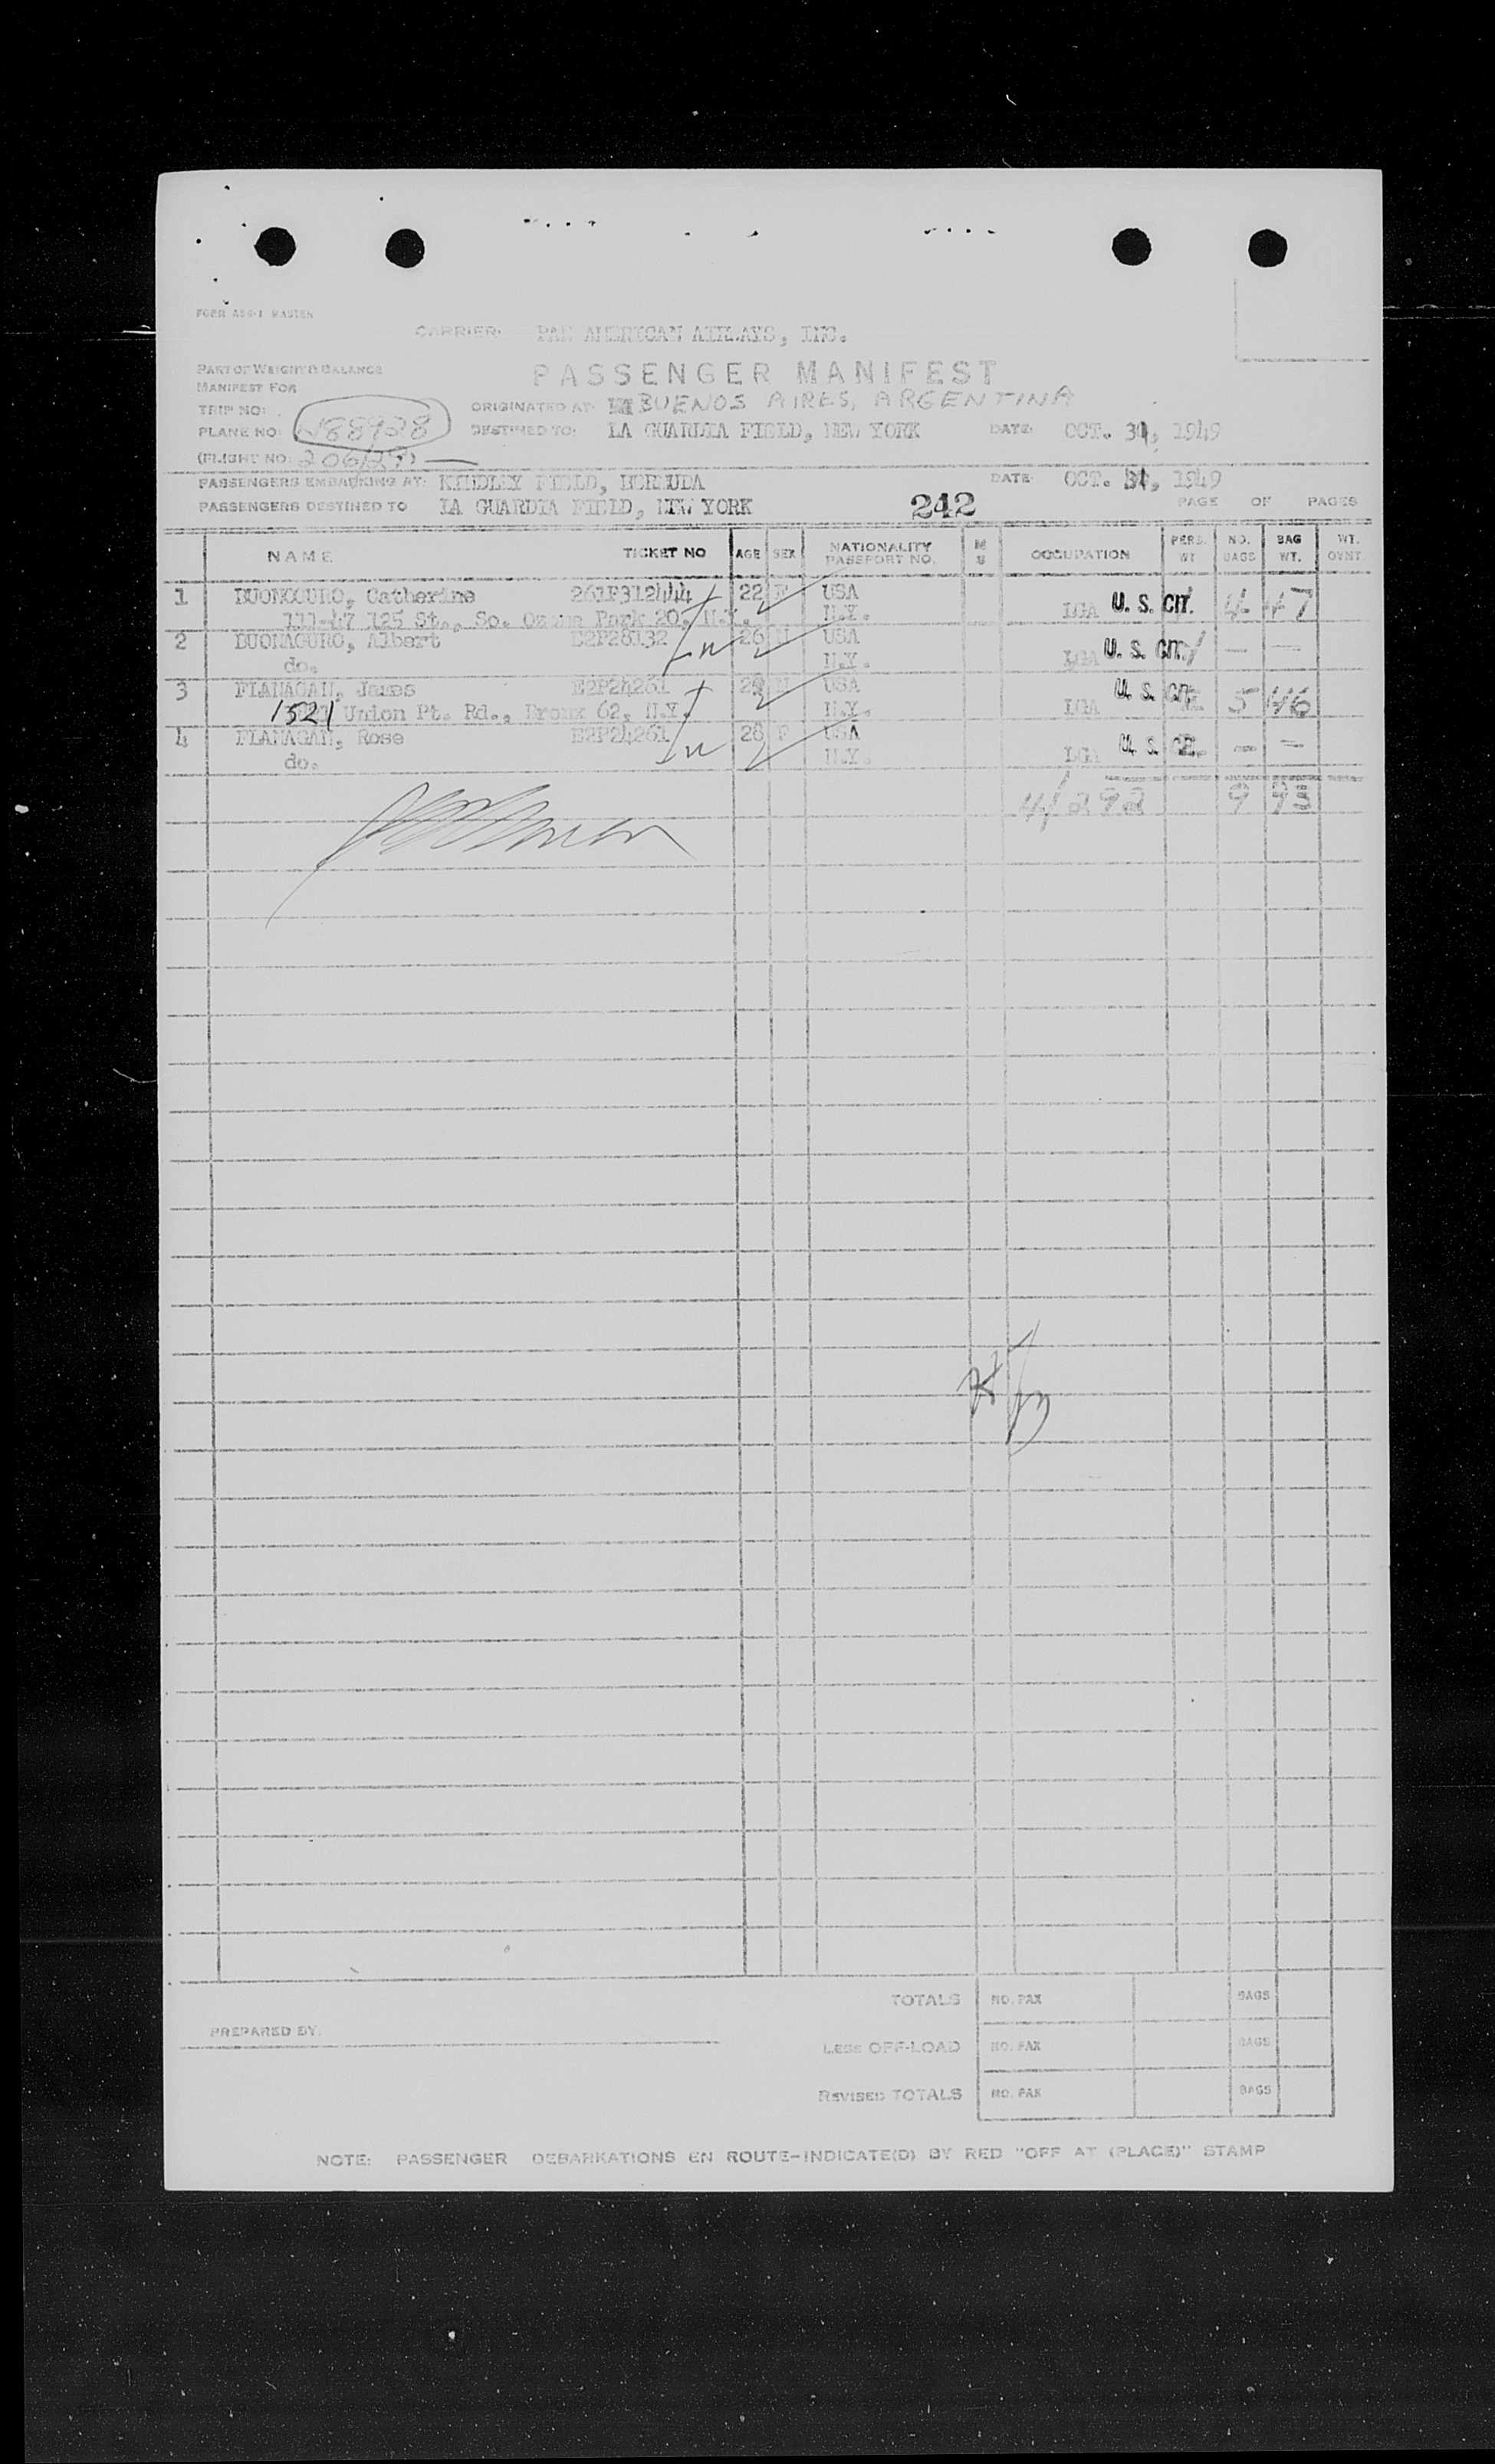 FORM ASS-1 MASTER
CARRIER: PAN AMERICAN AIRWAYS, INC.
PART OF WEIGHT & BALANCE
MANIFEST FOR
PASSENGER MANIFEST
TRIP NO:
ORIGINATED AT: BUENOS AIRES, ARGENTINA
PLANE NO: N88928
DESTINED TO: LA GUARDIA FIELD, NEW YORK DATE: OCT. 31, 1949
(FLIGHT NO: 206/29)
PASSENGERS EMBARKING AT: KINDLEY FIELD, BERMUDA DATE: OCT. 31, 1949
PASSENGERS DESTINED TO LA GUARDIA FIELD, NEW YORK 242 PAGE OF PAGES
NAME TICKET NO AGE SEX NATIONALITY PASSPORT NO. M S OCCUPATION PERS. WT NO. BAGS BAG WT. WT. OVNT.
1 BUONOCURO, Catherine 261F312444 22 F USA
111-47 125 St., So. Ozone Park 20, N.Y. N.Y. LGA U. S. CIT. 4 47
2 BUONAGURO, Albert E2P28132 26 M USA
do. N.Y. LGA U. S. CIT. — —
3 FLANAGAN, James E2P24261 29 M USA
1521 Union Pt. Rd., Bronx 62, N.Y. N.Y. LGA U. S. CIT. 5 46
4 FLANAGAN, Rose E2P24261 28 F USA
do. N.Y. LGA U. S. CIT. — —
4/292 9 93
TOTALS NO. PAX BAGS
PREPARED BY:
LESS OFF-LOAD NO. PAX BAGS
REVISED TOTALS NO. PAX BAGS
NOTE: PASSENGER DEBARKATIONS EN ROUTE-INDICATE(D) BY RED "OFF AT (PLACE)" STAMP